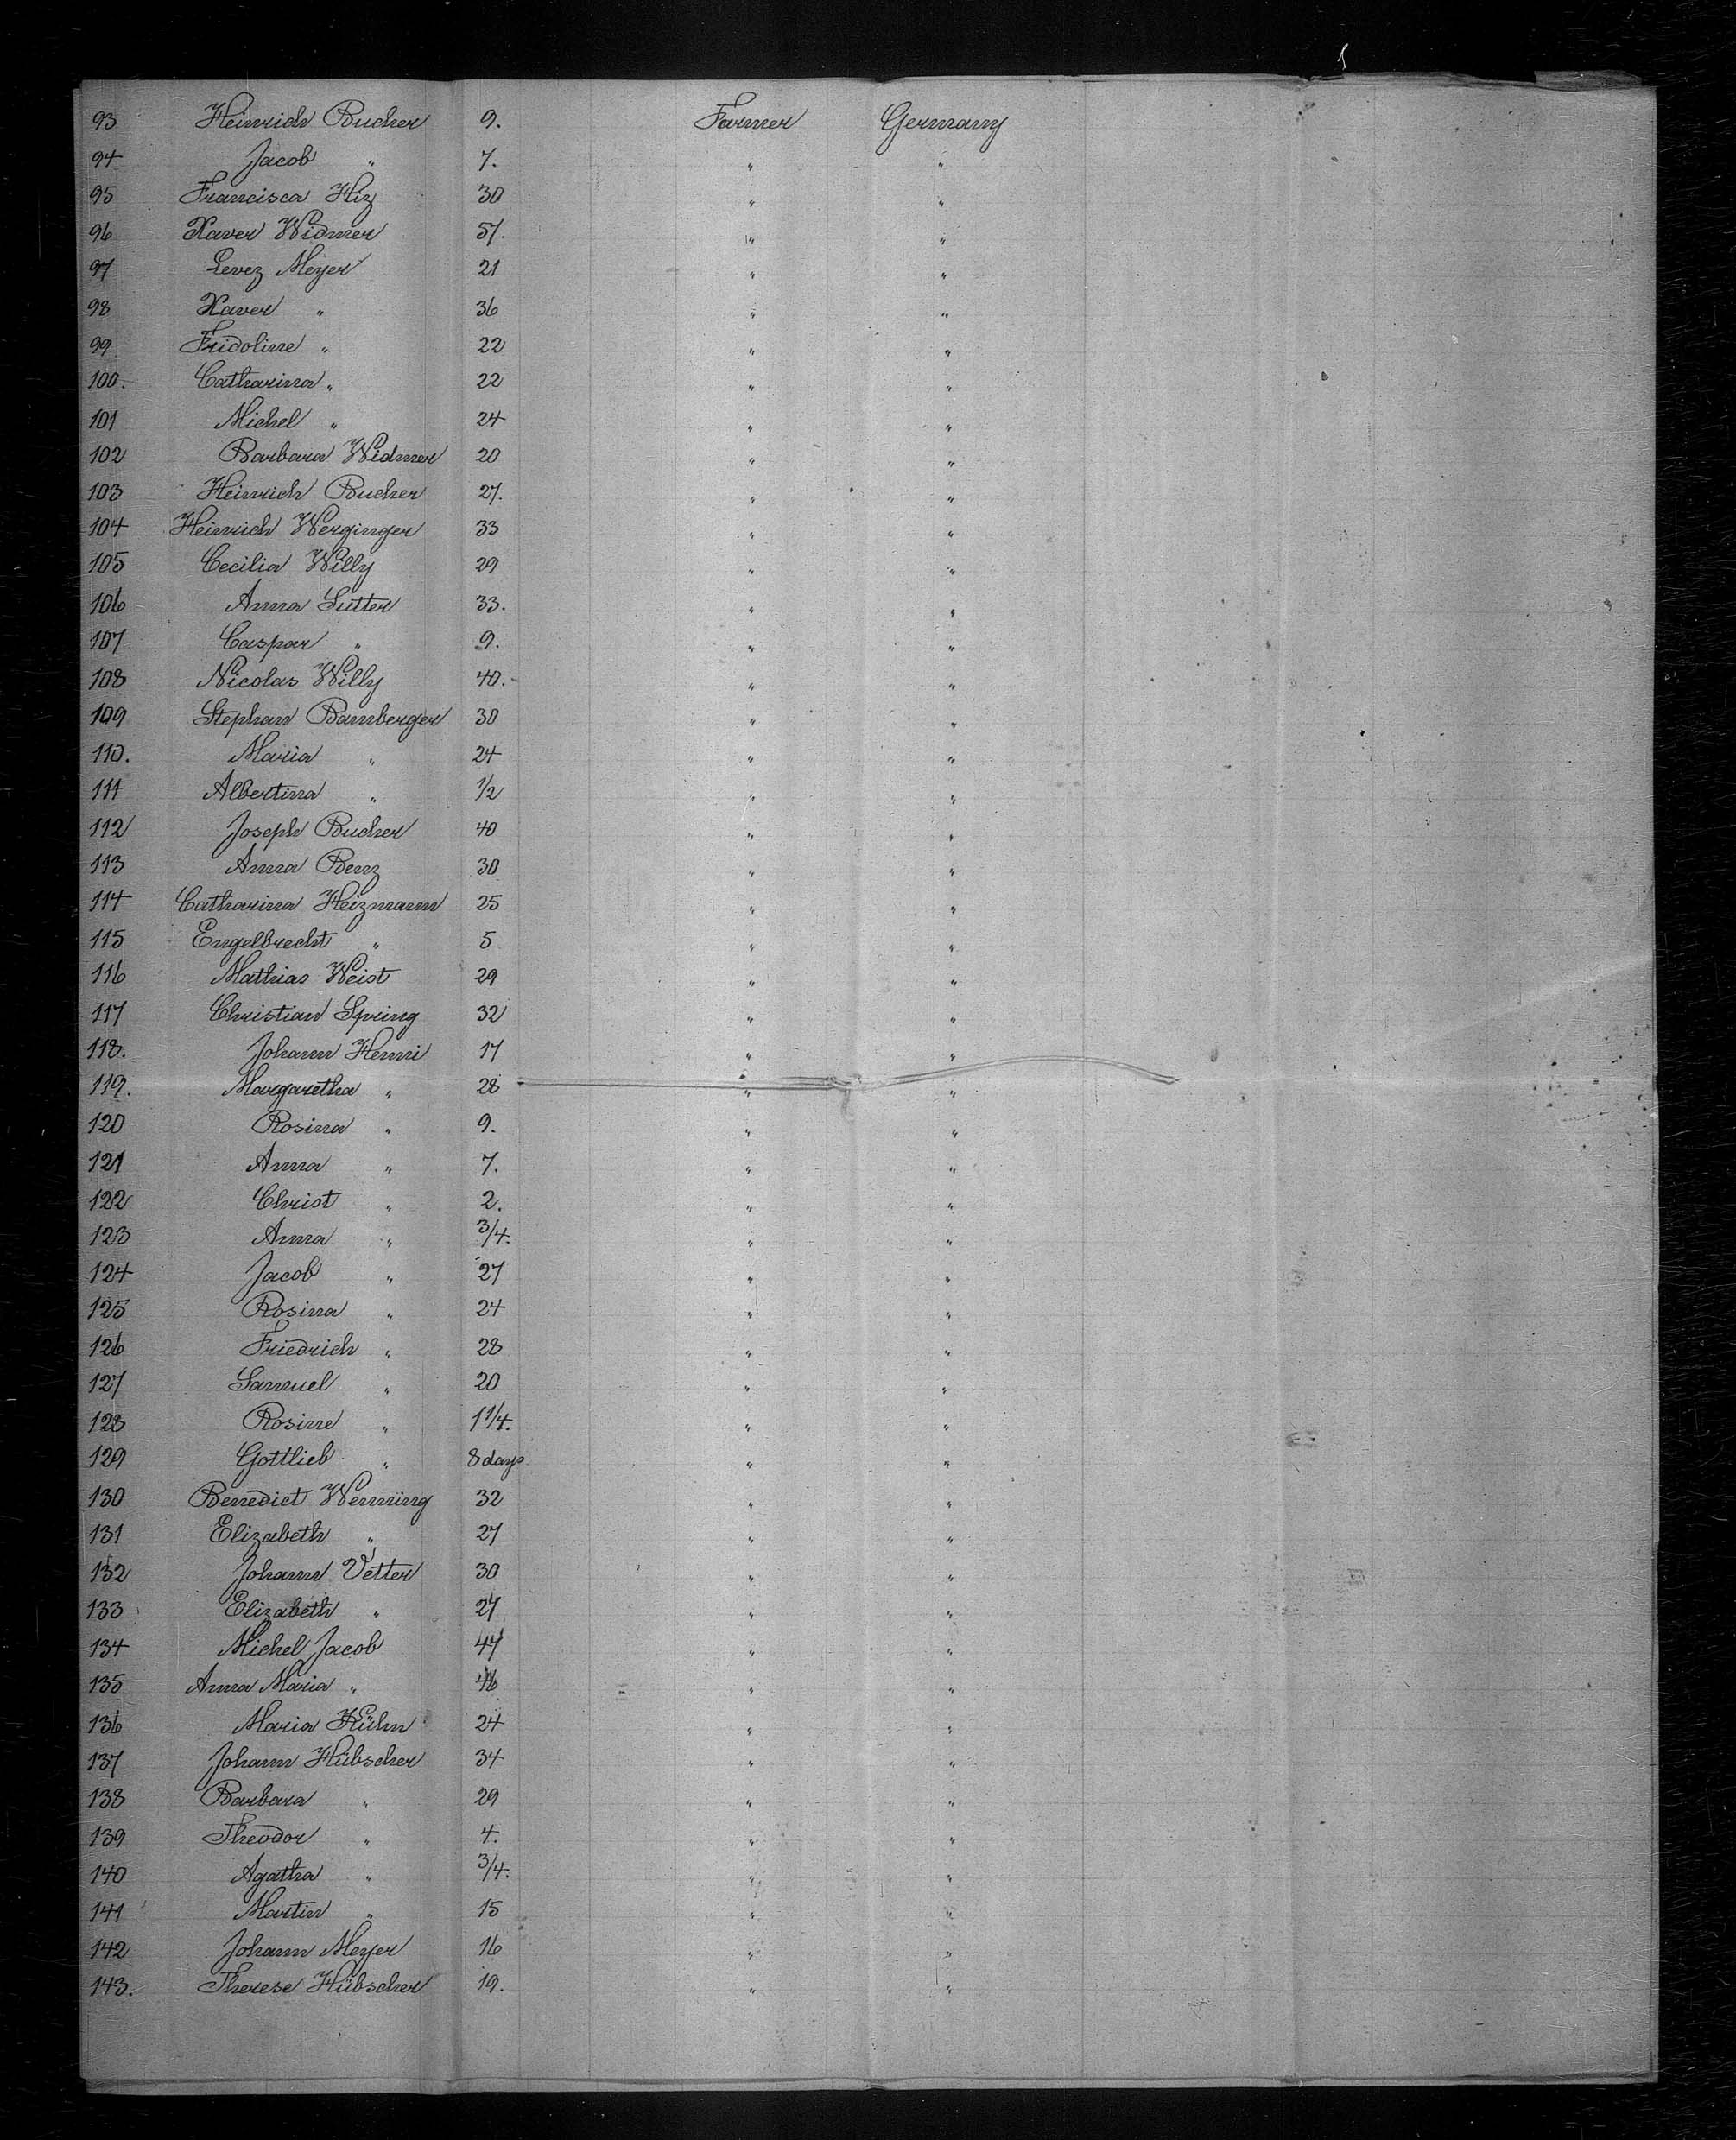 93 Heinrich Bucher 9. Farmer Germany
94 Jacob " 7. " "
95 Francisca Hiz 30 " "
96 Xaver Widmer 57. " "
97 Levez Meyer 21 " "
98 Xaver " 36 " "
99 Fridoline " 22 " "
100. Catharina " 22 " "
101 Michel " 24 " "
102 Barbara Widmer 20 " "
103 Heinrich Bucher 27. " "
104 Heinrich Werginger 33 " "
105 Cecilia Willy 29 " "
106 Anna Sutter 33. " "
107 Caspar " 9. " "
108 Nicolas Willy 40. " "
109 Stephan Bamberger 30 " "
110. Maria " 24 " "
111 Albertina " 1/2 " "
112 Joseph Bucher 40 " "
113 Anna Benz 30 " "
114 Catharina Heizmann 25 " "
115 Engelbrecht " 5 " "
116 Mathias Weist 29 " "
117 Christian Spring 32 " "
118. Johann Henni 17 " "
119. Margaretha " 28 " "
120 Rosina " 9. " "
121 Anna " 7. " "
122 Christ " 2. " "
123 Anna " 3/4. " "
124 Jacob " 27 " "
125 Rosina " 24 " "
126 Friedrich " 28 " "
127 Samuel " 20 " "
128 Rosine " 1 1/4. " "
129 Gottlieb " 8 days " "
130 Benedict Wenning 32 " "
131 Elizabeth " 27 " "
132 Johann Vetter 30 " "
133 Elizabeth " 27 " "
134 Michel Jacob 47 " "
135 Anna Maria " 46 " "
136 Maria Kühn 24 " "
137 Johann Hübscher 34 " "
138 Barbara " 29 " "
139 Theodor " 4. " "
140 Agatha " 3/4. " "
141 Martin " 15 " "
142 Johann Meyer 16 " "
143. Therese Hübscher 19. " "